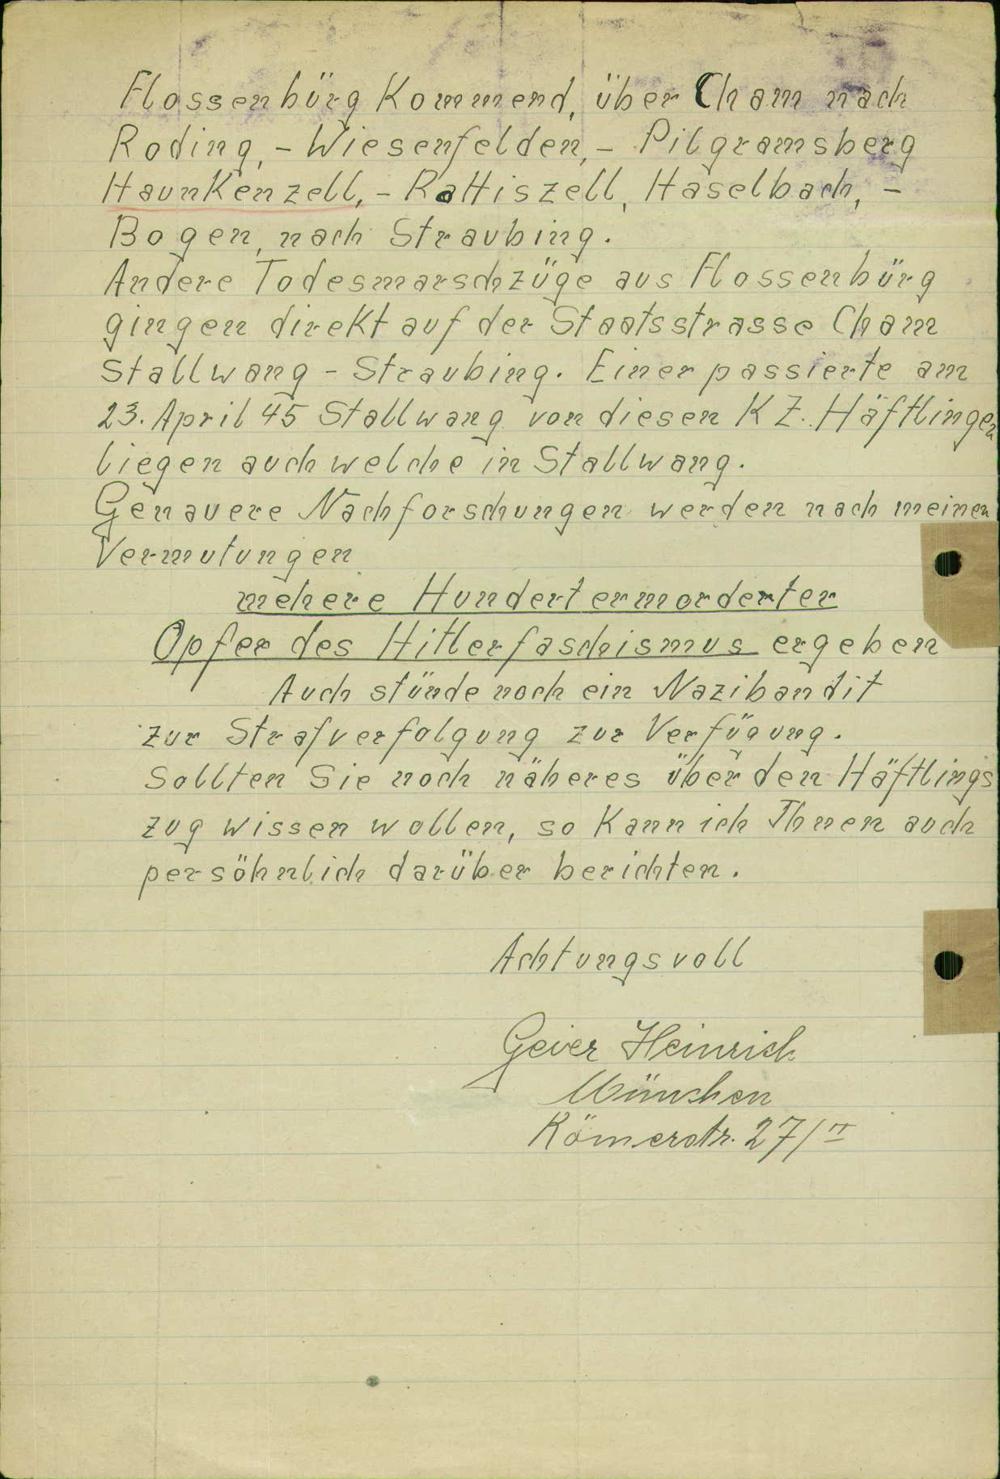 Flossenbürg Kommend, über Cham nach
Roding, - Wiesenfelden, - Pilgramsberg
Haunkenzell, - Rattiszell, Haselbach, -
Bogen, nach Straubing.
Andere Todesmarschzüge aus Flossenbürg
gingen direkt auf der Staatsstrasse Cham
Stallwang - Straubing. Einer passierte am
23. April 45 Stallwang von diesen KZ. Häftlingen
liegen auch welche in Stallwang.
Genauere Nachforschungen werden nach meinen
Vermutungen
mehere Hundert ermorderter
Opfer des Hitlerfaschismus ergeben
Auch stünde noch ein Nazibandit
zur Strafverfolgung zur Verfügung.
Sollten Sie noch näheres über den Häftlings
zug wissen wollen, so kann ich Ihnen auch
persöhnlich darüber berichten.
Achtungsvoll
Geier Heinrich
München
Römerstr. 27/II